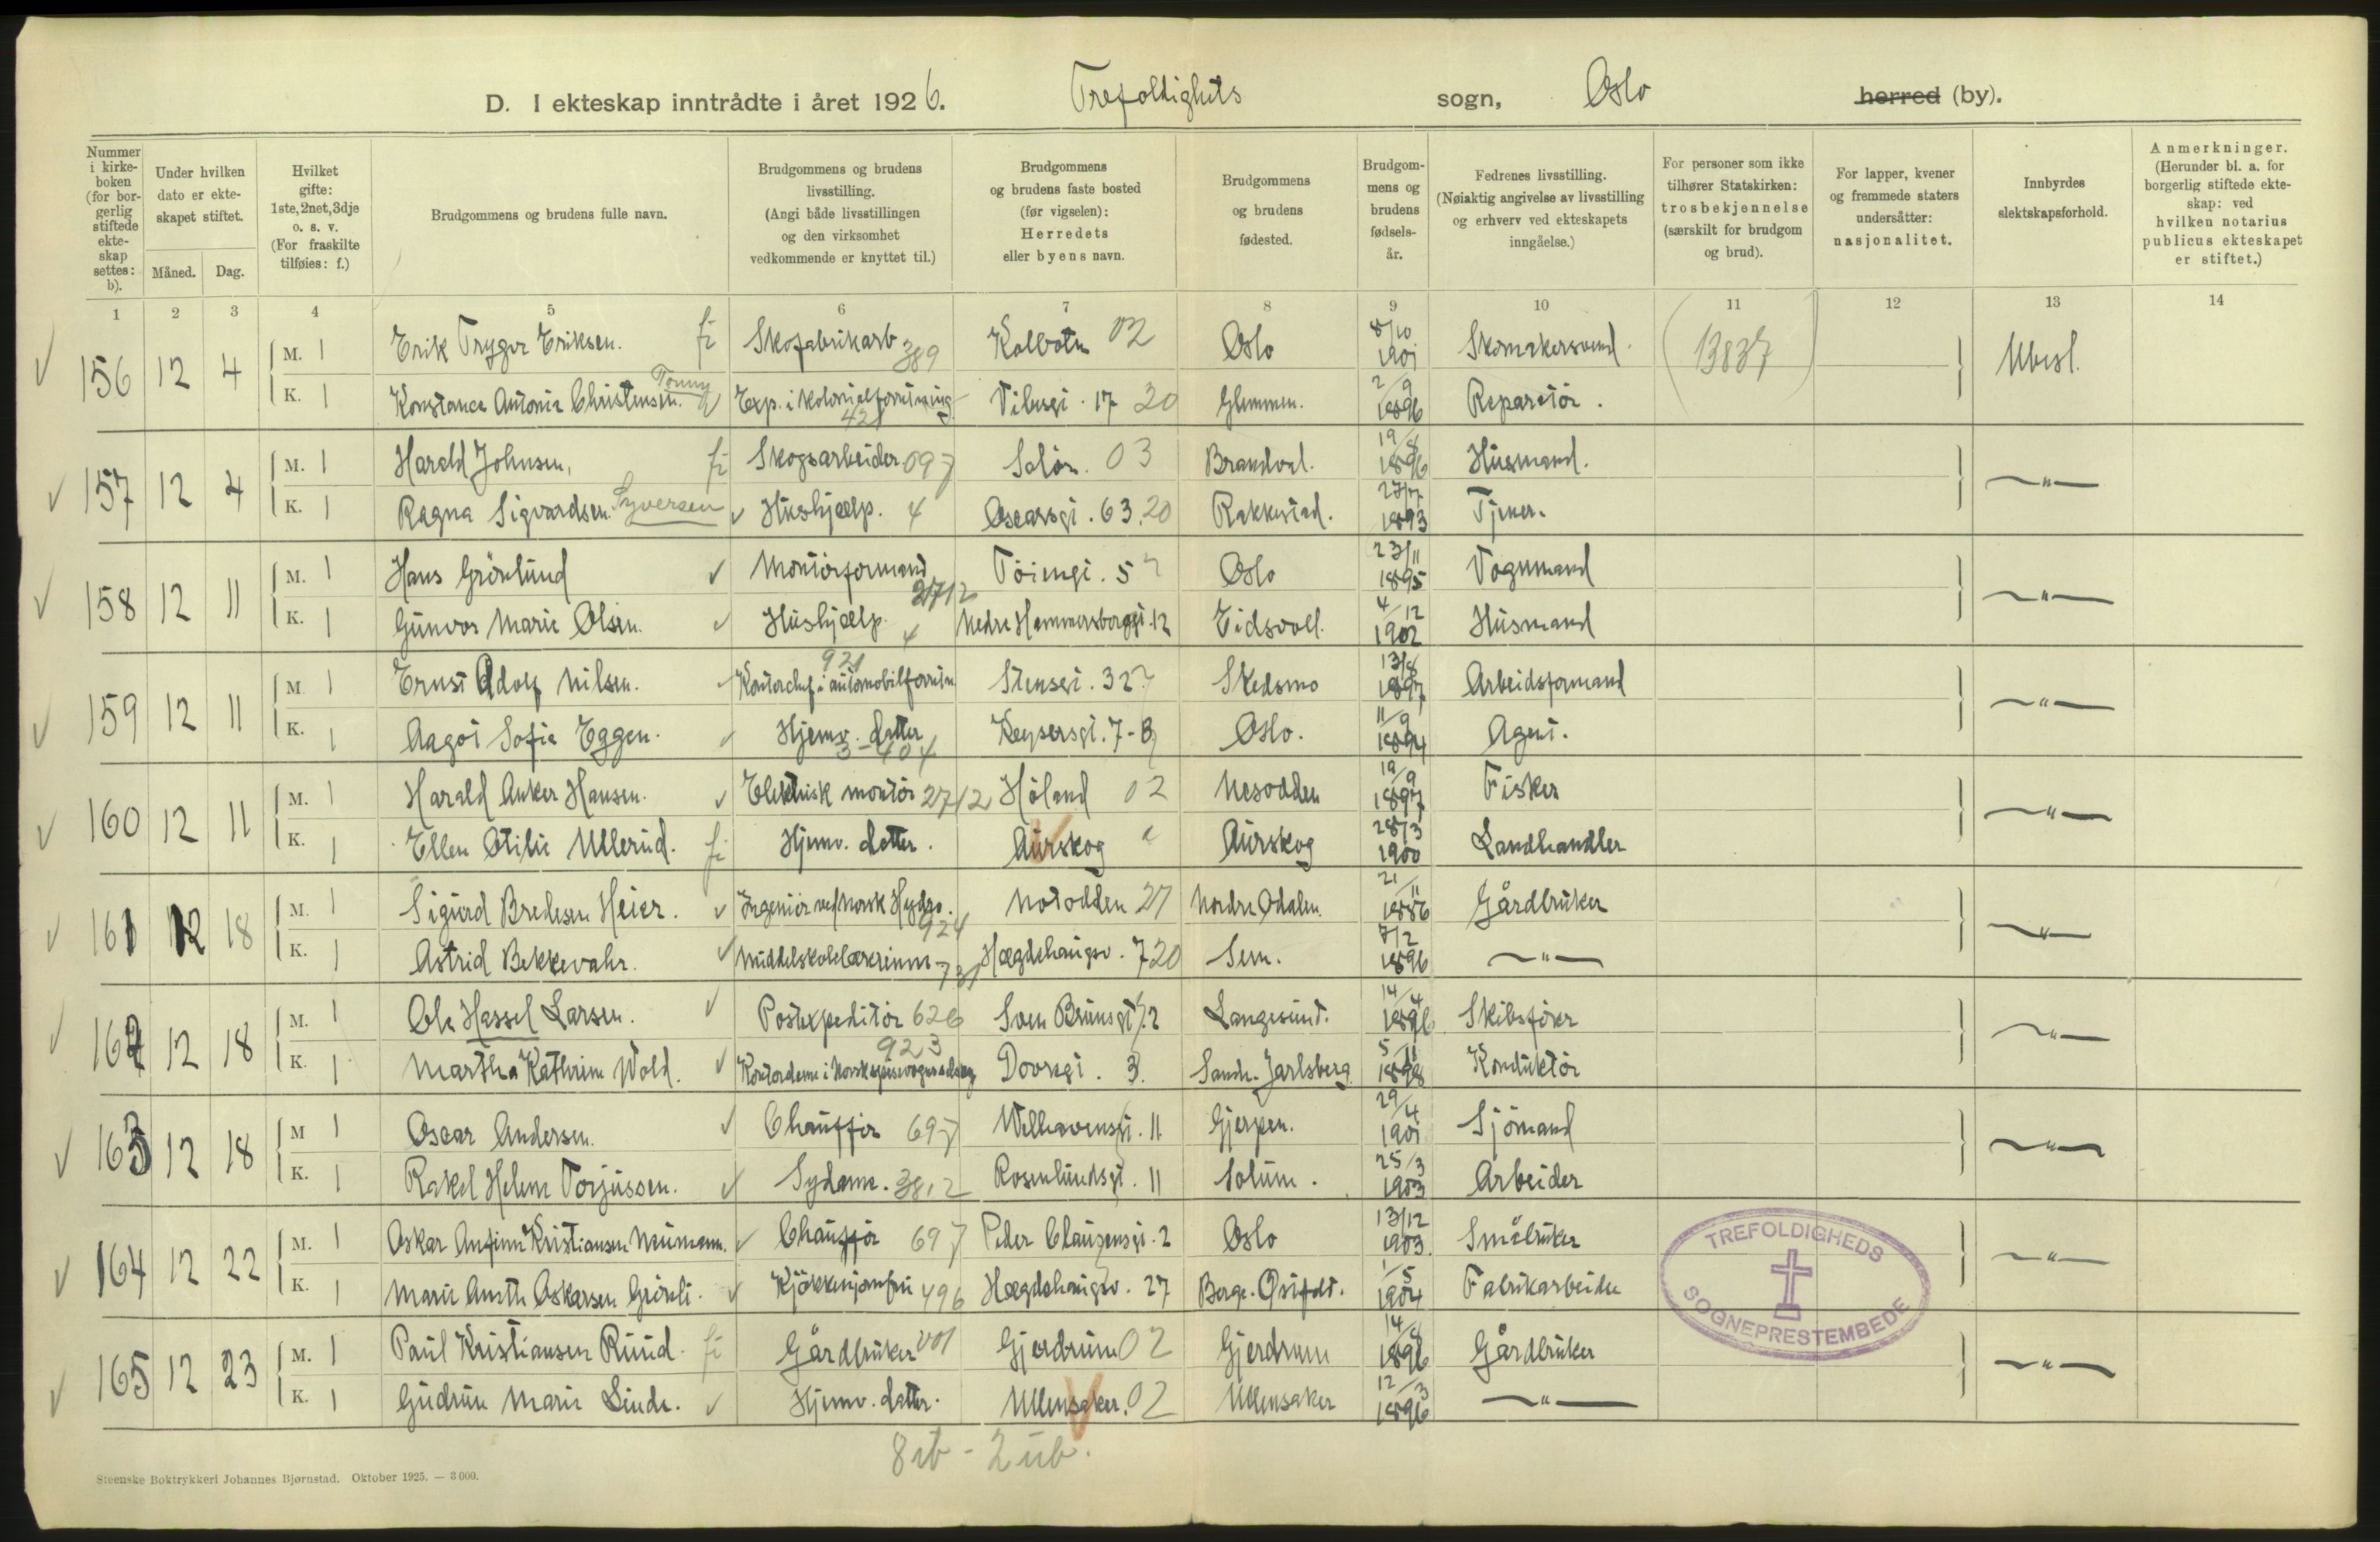 D. I ekteskap inntrådte i året 1926. Trefoldighets sogn, Oslo herred (by).
Nummer i kirkeboken (for borgerlig stiftede ekteskap settes: b).
Under hvilken dato er ekteskapet stiftet.
Måned. Dag.
Hvilket gifte: 1ste, 2net, 3dje o. s. v. (For fraskilte tilføies: f.)
Brudgommens og brudens fulle navn.
Brudgommens og brudens livsstilling. (Angi både livsstillingen og den virksomhet vedkommende er knyttet til.)
Brudgommens og brudens faste bosted (før vigselen): Herredets eller byens navn.
Brudgommens og brudens fødested.
Brudgommens og brudens fødselsår.
Fedrenes livsstilling. (Nøiaktig angivelse av livsstilling og erhverv ved ekteskapets inngåelse.)
For personer som ikke tilhører Statskirken: trosbekjennelse (særskilt for brudgom og brud).
For lapper, kvener og fremmede staters undersåtter: nasjonalitet.
Innbyrdes slektskapsforhold.
Anmerkninger. (Herunder bl. a. for borgerlig stiftede ekteskap: ved hvilken notarius publicus ekteskapet er stiftet.)
1 2 3 4 5 6 7 8 9 10 11 12 13 14
156 12 4 M. 1 Erik Trygve Eriksen. fi Skofabrikarb 389 Kolbotn 02 Oslo 8/10 1901 Skomakersvend. (13837) Ubesl.
K. 1 Konstance Antonie Christensen. Tonny Exp. i kolonialforretning 421 Vibesgt. 17 20 Glemmen. 2/9 1896 Reparatør.
157 12 4 M. 1 Harald Johnsen, fi Skogsarbeider 097 Solør. 03 Brandval. 19/8 1896 Husmand. — " —
K. 1 Ragna Sigvardsen Syversen Hushjælp. 4 Oscarsgt. 63. 20 Rakkestad. 27/7 1893 Tjener.
158 12 11 M. 1 Hans Grönlund Montørformand 2712 Töiengt. 5 Oslo 23/11 1895 Vognmand — " —
K. 1 Gunvor Marie Olsen. Hushjælp. 4 Nedre Hammersborggt. 12 Eidsvoll. 4/12 1902 Husmand
159 12 11 M. 1 Ernst Adolf Nilsen. Kontorchef i automobilforretn 921 Stensgt. 32 Skedsmo 13/8 1897 Arbeidsformand — " —
K. 1 Aagot Sofie Eggen. Hjemv. datter 3-404 Keysersgt. 7-B Oslo. 11/9 1894 Agent.
160 12 11 M. 1 Harald Anker Hansen. Elektrisk montör 2712 Höland 02 Nesodden 19/9 1897 Fisker — " —
K. 1 Ellen Otilie Ullerud. fi Hjemv. datter. Aurskog Aurskog 28/3 1900 Landhandler
161 12 18 M. 1 Sigurd Bredesen Heier. Ingeniör ved Norsk Hydro. 924 Notodden 27 Nordre Odalen. 21/11 1886 Gårdbruker — " —
K. 1 Astrid Bekkevahr. Middelskolelærerinne 731 Hægdehaugsv. 7 20 Sem. 7/2 1896 — " —
162 12 18 M. 1 Ole Hassel Larsen. Postexpeditör 626 Sven Brunsgt. 2 Langesund. 14/4 1896 Skibsförer — " —
K. 1 Martha Kathrine Wold. Kontordame i Norsk spisevognselskap 923 Dovregt. 3. Sande. Jarlsberg 5/11 1898 Konduktör
163 12 18 M 1 Oscar Andersen. Chaufför 697 Welhavensgt. 11 Gjerpen. 29/4 1901 Sjömand — " —
K. 1 Rakel Helene Torjussen. Sydame. 3812 Rosenlundsgt. 11 Solum. 25/3 1903 Arbeider
164 12 22 M. 1 Oskar Anfinn Kristiansen Neumann. Chauffør 697 Peder Clausensgt. 2 Oslo 13/12 1903. Småbruker — " —
K. 1 Marie Anette Oskarsen Grönli. Kjökkenjomfru 496 Hægdehaugsv. 27 Borge. Østfold. 1/5 1904 Fabrikarbeider
165 12 23 M. 1 Paul Kristiansen Ruud. fi Gårdbruker 001 Gjerdrum 02 Gjerdrum 14/8 1896 Gårdbruker — " —
K. 1 Gudrun Marie Linde. Hjemv. datter. Ullensaker. 02 Ullensaker 12/3 1896 — " —
TREFOLDIGHEDS
SOGNEPRESTEMBEDE
8 ib - 2 ub.
Steenske Boktrykkeri Johannes Bjørnstad. Oktober 1925. — 3 000.